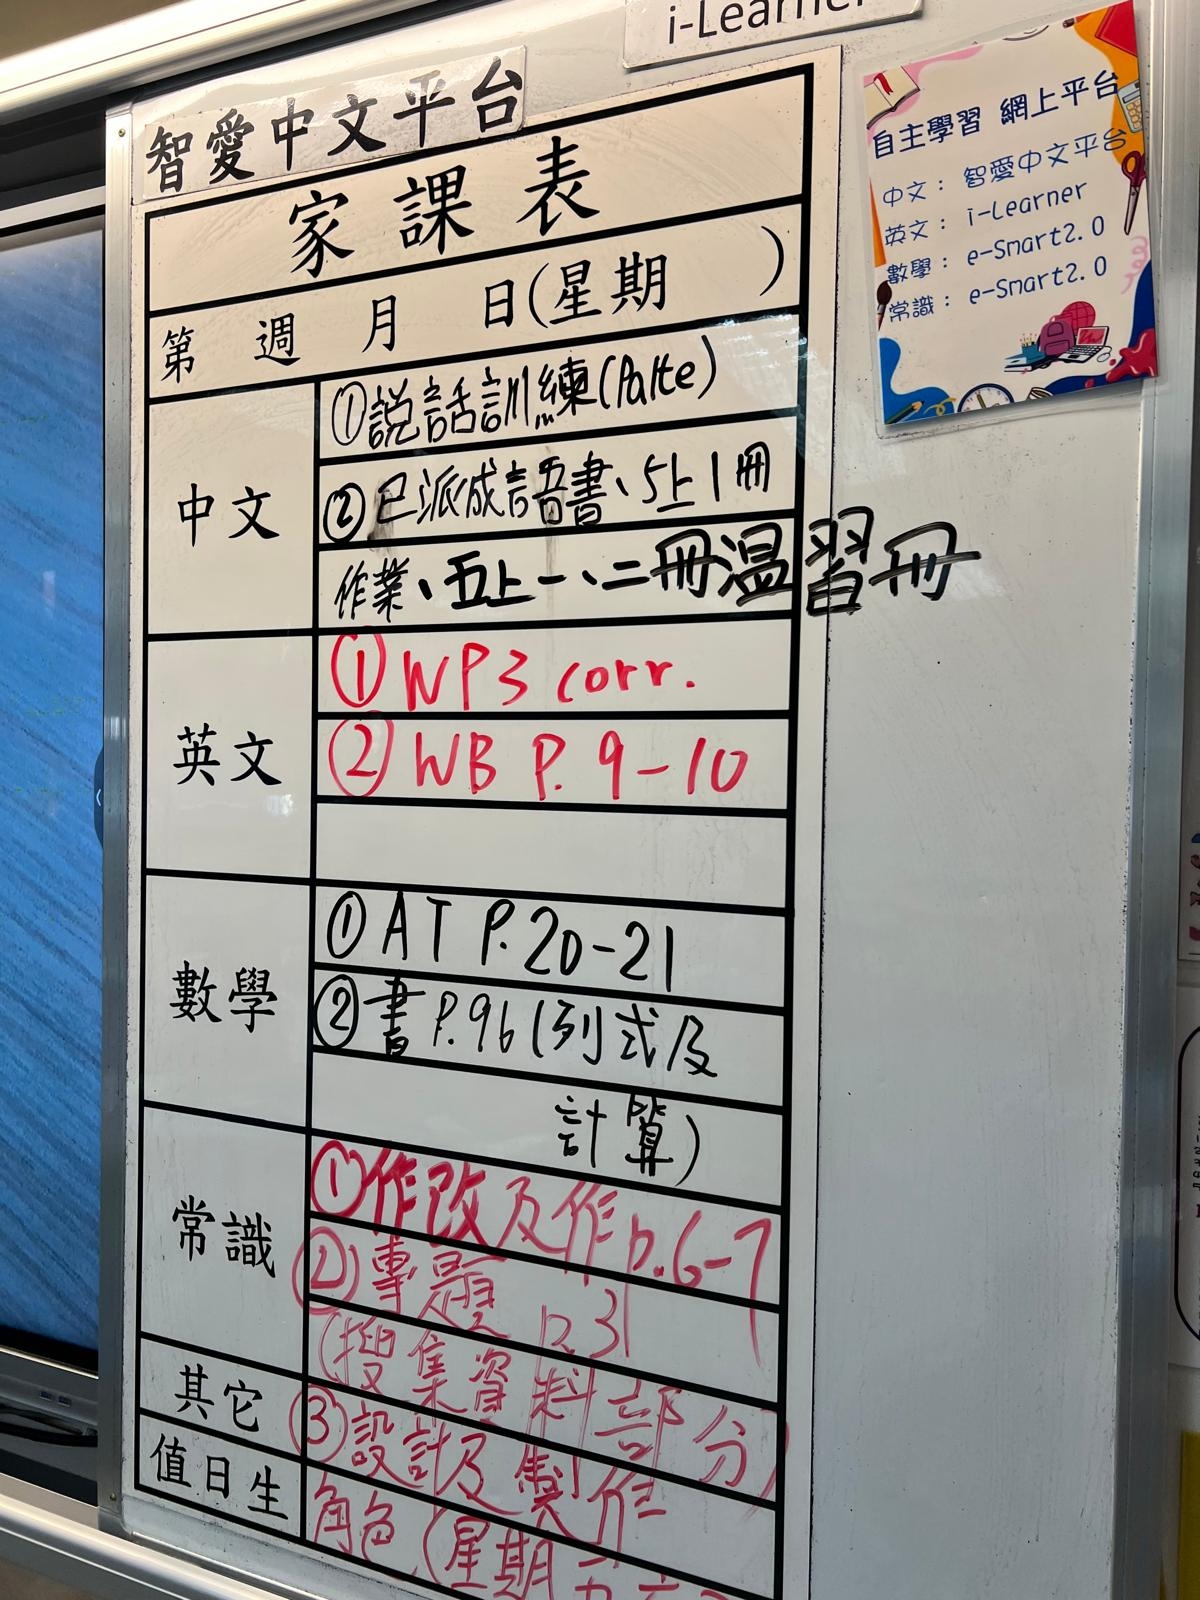 i-Learner
智愛中文平台
家課表
第 週 月 日(星期 )
中文
①説話訓練(Palte)
②已派成語書、5上1冊
作業、五上一、二冊溫習冊
英文
① WP3 corr.
② WB P. 9-10
數學
① AT P.20-21
② 書 P.96 (列式及
計算)
常識
①作改及作p.6-7
②專題 p.31
(搜集資料部分)
其它
③設計及製作
值日生
角色(星期
自主學習 網上平台
中文： 智愛中文平台
英文： i-Learner
數學： e-Smart2.0
常識： e-Smart2.0